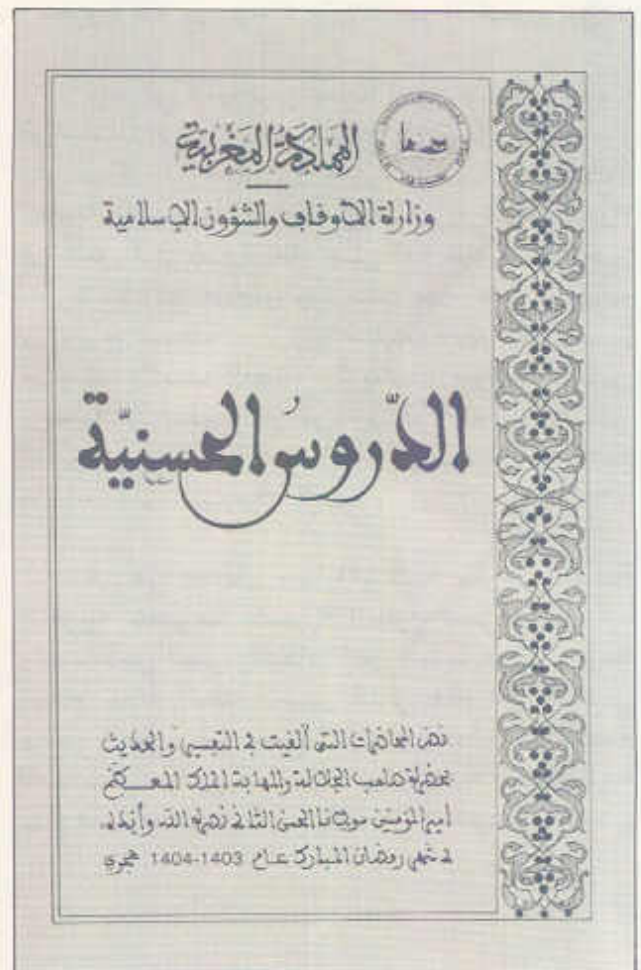 المملكة المغربية
وزارة الأوقاف والشؤون الإسلامية
الدّروسُ الحسنيّة
نص المحاضرات التي ألقيت في التفسير والحديث
بحضرة صاحب الجلالة والمهابة الملك المعظم
أمير المؤمنين مولانا الحسن الثاني نصره الله وأيده
في شهر رمضان المبارك عام 1403-1404 هجري